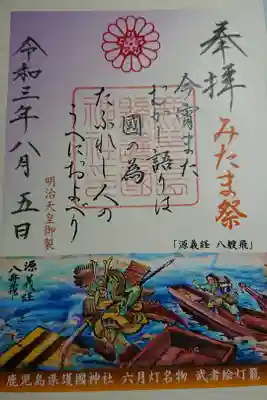 奉拝
みたま祭
「源義経 八艘飛」
今宵また
むかし語りは
國の為
たふれし人の
うへにおよべり
明治天皇御製
令和三年八月五日
源義経
八艘飛
鹿児島県護國神社 六月灯名物 武者絵灯籠